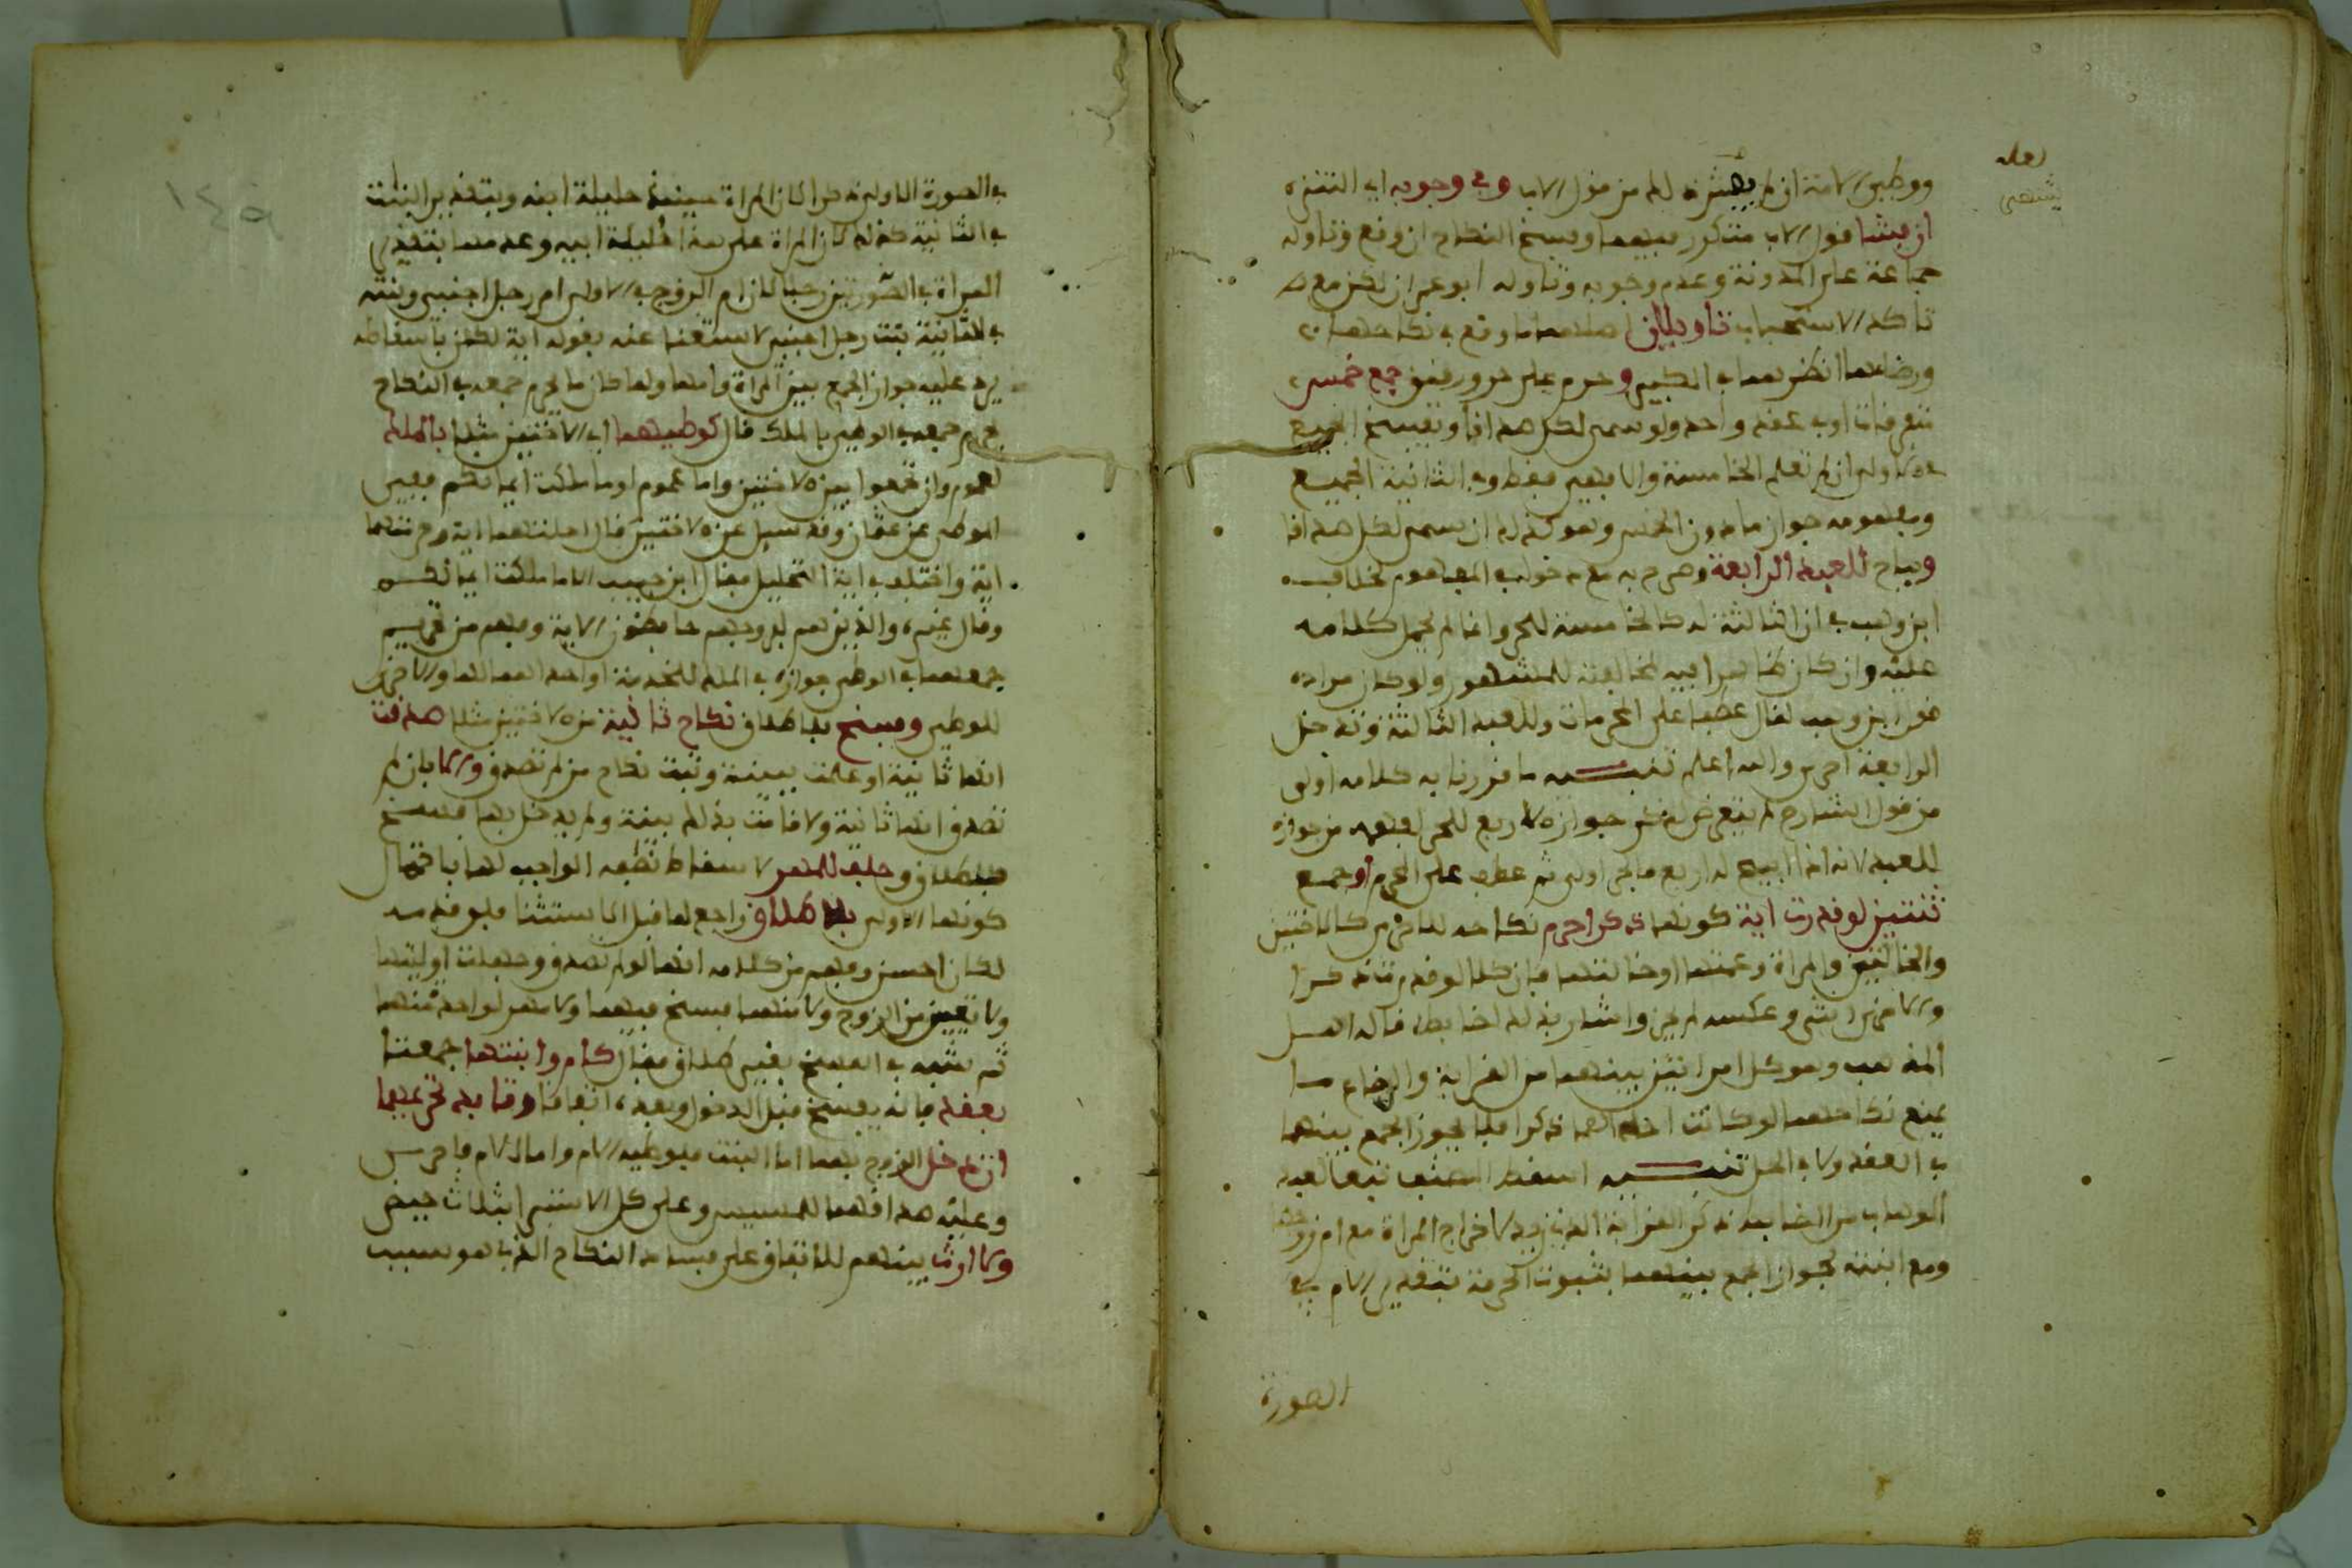 ووطئ الامة ان لم يشتره له من قول الاب وفي وجوبه اي التنزه
ان فشا قول الاب متكرر فيهما وفسخ النكاح ان وقع وتاوله
جماعة على المدونة وعدم وجوبه وتاوله ابو عمران لكن مع
تاكد الاستحباب تاويلان
ورضاعهما انظرهما في الكبير وحرم على حر ورقيق جمع خمس
متفرقات او في عقد واحد ولو سمى لكل صداقا ويفسخ الجميع
ان لم تعلم الخامسة والا فهي فقط وفي الثانية الجميع
ومفهومه جواز ما دون الخمس وهو كذلك ان سمى لكل صداقا
وجاز للعبد الرابعة وصرح به مع دخوله في المفهوم لخلاف
ابن وهب في ان الثالثة له كالخامسة للحر وانما لم يحمل كلامه
عليه وان كان ظاهرا فيه لمخالفته للمشهور ولو كان مراده
قول ابن وهب لقال عطفا على المحرمات وللعبد الثالثة وتدخل
الرابعة احرى والله اعلم تنبيه ما قررنا به كلامه اولى
من قول الشارح لم يتعرض لذكر جواز الاربع للحر لفهمه من جوازه
للعبد لانه اذا ابيح له اربع فالحر اولى ثم عطف على المحرم او جمع
ثنتين لو قدرت اية كونها ذكرا حرم نكاحه للاخرى كالاختين
والخالتين والمراة وعمتها او خالتها فان كلا لو قدرته ذكرا
والاخرى انثى وعكسه لم يجز واشار بذلك لضابط قاله اهل
المذهب وهو كل امراتين بينهما من القرابة والرضاع ما
يمنع نكاحهما لو كانت احداهما ذكرا فلا يجوز الجمع بينهما
في العقد ولا في الحل تنبيه اسقط المصنف تبعا لعبد
الوهاب من الضابط ذكر القرابة الذي زيد لاخراج المراة مع ام زوجها
ومع ابنته لجواز الجمع بينهما بثبوت الحرمة بتقدير الام في
لعله
يشتهى
الصورة
في الصورة الاولى ذكرا لان المراة حينئذ حليلة ابنه وبتقدير البنت
في الثانية كذلك لان المراة على هذا حليلة ابيه وعدمها بتقدير
المراة في الصورتين رجلا لان ام الزوج في الاولى ام رجل اجنبي وبنته
في الثانية بنت رجل اجنبي لاستغنا عنه بقوله اية لكن باسقاطه
يرد عليه جواز الجمع بين المراة وامها ولما كان ما يحرم جمعه في النكاح
يحرم جمعه في الوطئ بالملك قال كوطئهما اي الاختين مثلا بالملك
لعموم وان تجمعوا بين الاختين واما عموم او ما ملكت ايمانكم ففي
الموطا عن عثمان وقد سيل عن الاختين قال احلتهما اية وحرمتهما
اية واختلف في اية التحليل فقال ابن حبيب الا ما ملكت ايمانكم
وقال غيره والذين هم لفروجهم حافظون الاية وفهم من تحريم
جمعهما في الوطئ جوازه في الملك للخدمة او احداهما لها والاخرى
للوطئ وفسخ بلا طلاق نكاح ثانية من الاختين مثلا صدقت
انها ثانية او علمت ببينة وثبت نكاح من لم تصدق والا بان لم
تصدق انها ثانية ولا قامت بذلك بينة ولم يدخل بها فسخ
بطلاق وحلف للمهر لاسقاط نصفه الواجب لها باحتمال
كونها الاولى بلا طلاق راجع لما قبل الا يستثنا فلو قدمه
لكان احسن وفهم من كلامه انها لو لم تصدق وجهلت اوليتها
ولا تعيين من الزوج ولا منهما فسخ فيهما ولا مهر لواحدة منهما
ثم شبه في الفسخ بغير طلاق فقال كام وابنتها جمعتا
بعقد فانه يفسخ قبل الدخول وبعده اتفاقا وتابد تحريمهما
ان دخل الزوج بهما اما البنت فبوطيه الام واما الام فاحرى
وعليه صداقهما للمسيس وعلى كل الاستبرا بثلاث حيض
ولا ارث بينهم للاتفاق على فساد النكاح الذي هو سبب